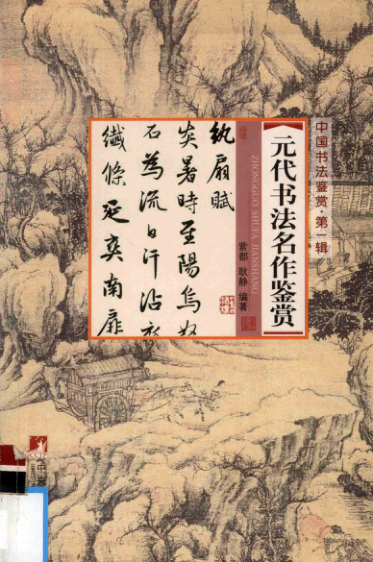 中国书法鉴赏·第一辑
元代书法名作鉴赏
ZHONGGUO SHUFA JIANSHANG
紫都 耿静 编著
紈扇賦
炎暑時至陽烏
石為流日汗沾
纖絛延爽南扉